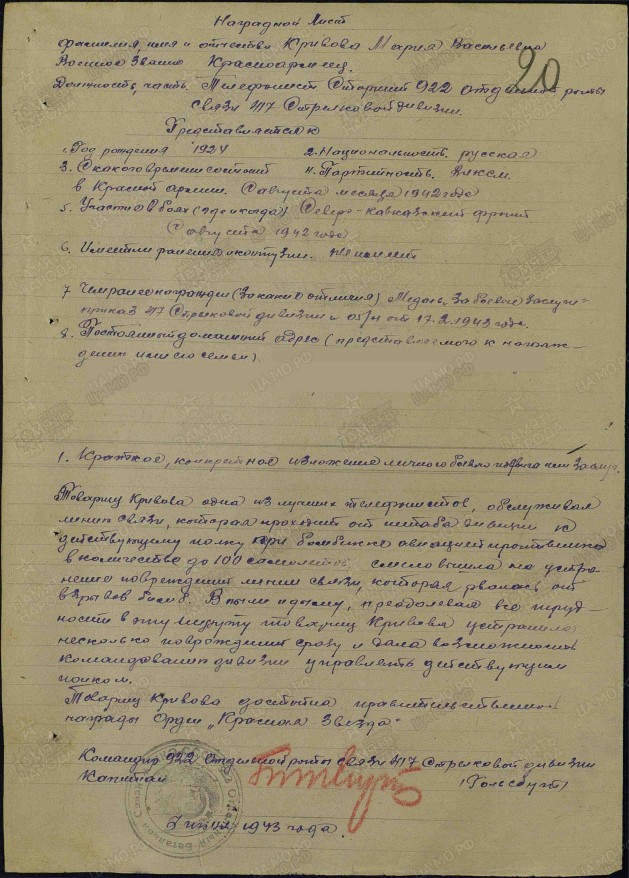 Наградной Лист
20
фамилия, имя и отчество Кривова Мария Васильевна
Военное звание Красноармеец
Должность, часть. Телефонист Старший 922 отдельной роты
связи 417 Стрелковой дивизии.
Представляется к
1. Год рождения 1924 2. Национальность. русская
3. С какого времени состоит 4. Партийность. ВЛКСМ
в Красной армии. С августа месяца 1942 года
5. Участие в боях (где и когда) Северо-Кавказский фронт
С августа 1942 года
6. Имеет ли ранения и контузии. не имеет
7. Чем ранее награжден (за какие отличия) Медаль За боевые заслуги
приказ 417 Стрелковой дивизии от 17.2.1943 года.
8. Постоянный домашний адрес (представляемого к награж-
дению или его семьи).
1. Краткое, конкретное изложение личного боевого подвига или заслуг.
Товарищ Кривова одна из лучших телефонистов, обслуживая
линию связи, которая проходит от штаба дивизии к
действующему полку при бомбежке авиацией противника
в количестве до 100 самолетов, смело вышла на устра-
нение повреждений линии связи, которая рвалась от
взрывов бомб. В пыли и дыму, преодолевая все труд-
ности в эту минуту товарищ Кривова устранила
несколько повреждений сразу и дала возможность
командованию дивизии управлять действующим
полком.
Товарищ Кривова достойна правительственной
награды Орден „Красная Звезда"
Командир 922 Отдельной роты связи 417 Стрелковой дивизии
Капитан
1943 года.